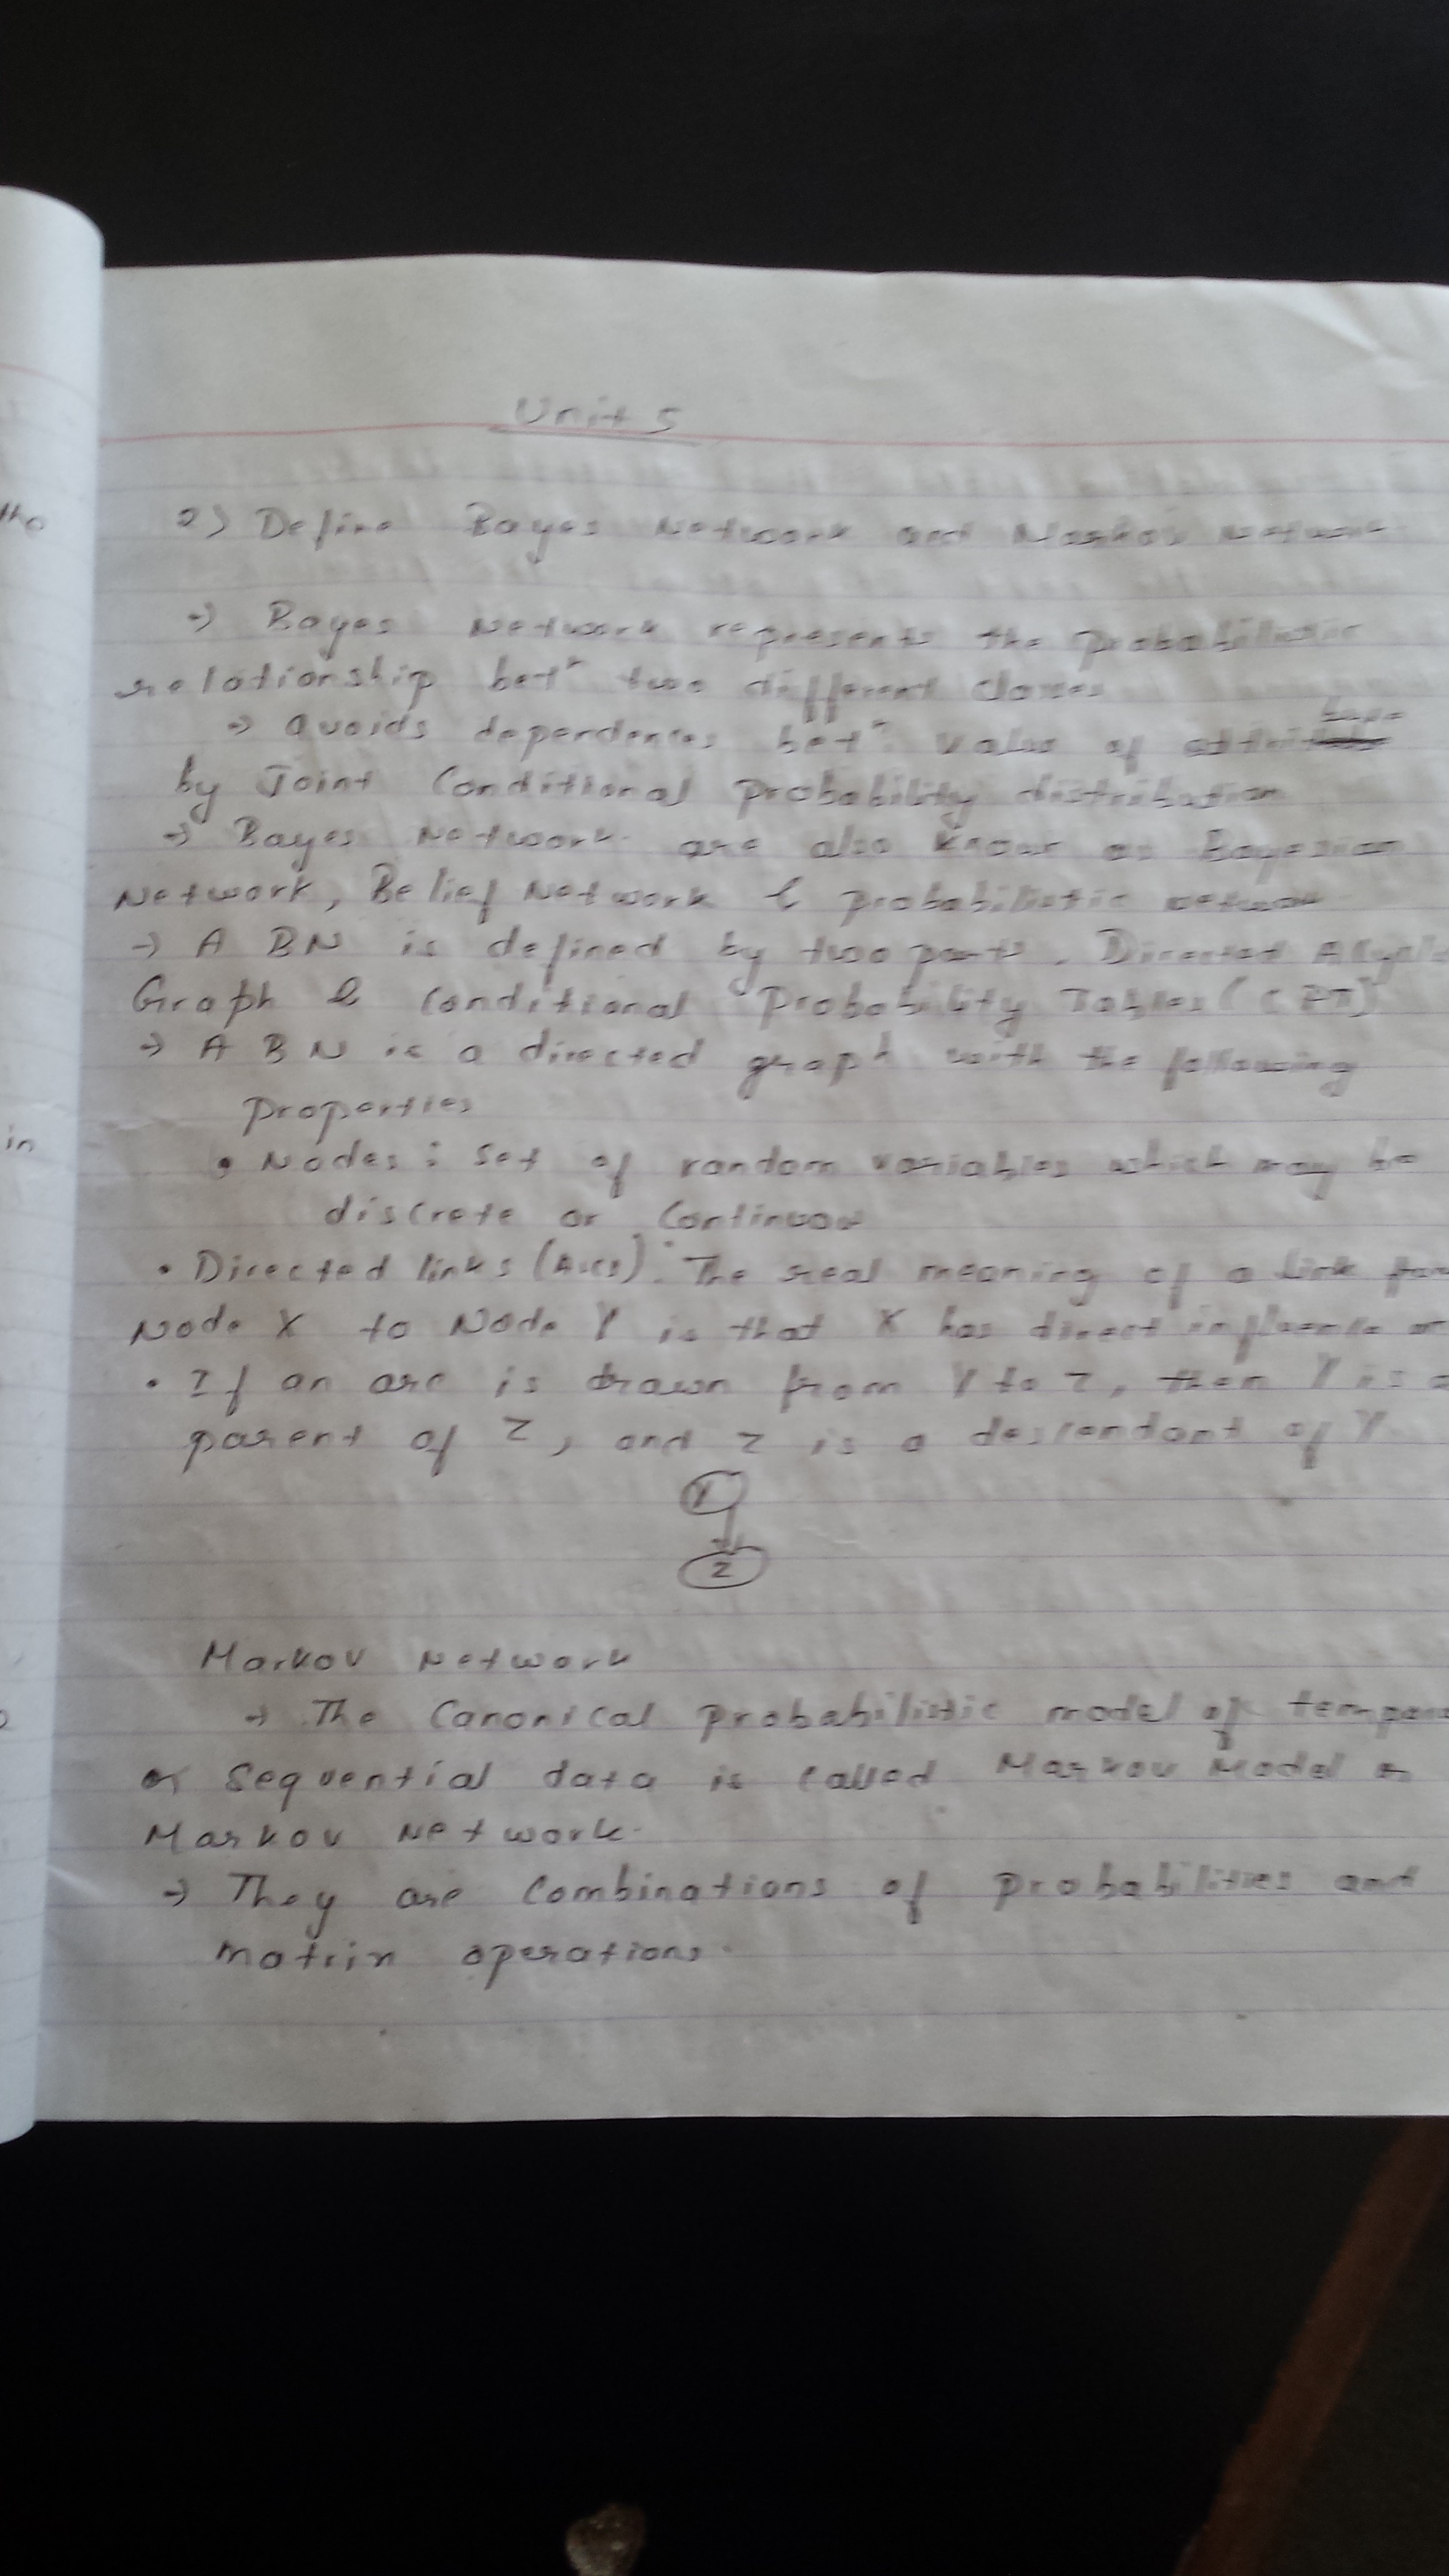 Unit 5
2) Define Bayes Network and Markov Network
→ Bayes Network represents the probabilistic
relationship betⁿ two different classes
→ avoids dependences betⁿ value of
by Joint Conditional Probability distribution
→ Bayes Network are also know as Bayesian
Network, Belief Network & probabilistic network
→ A BN is defined by two parts. Directed
Graph & Conditional Probability Tables (CPT)
→ A BN is a directed graph with the following
Properties
• Nodes: Set of random variables which may be
discrete or Continuous
• Directed links (Arcs): The real meaning of a link
Node X to Node Y is that X has direct influence
• If an arc is drawn from Y to Z, then Y is a
parent of Z, and Z is a descendant of Y
Y
Z
Markov Network
→ The Canonical Probabilistic model of
or Sequential data is called Markov Model or
Markov Network.
→ They are Combinations of Probabilities and
matrix operations.
the
in